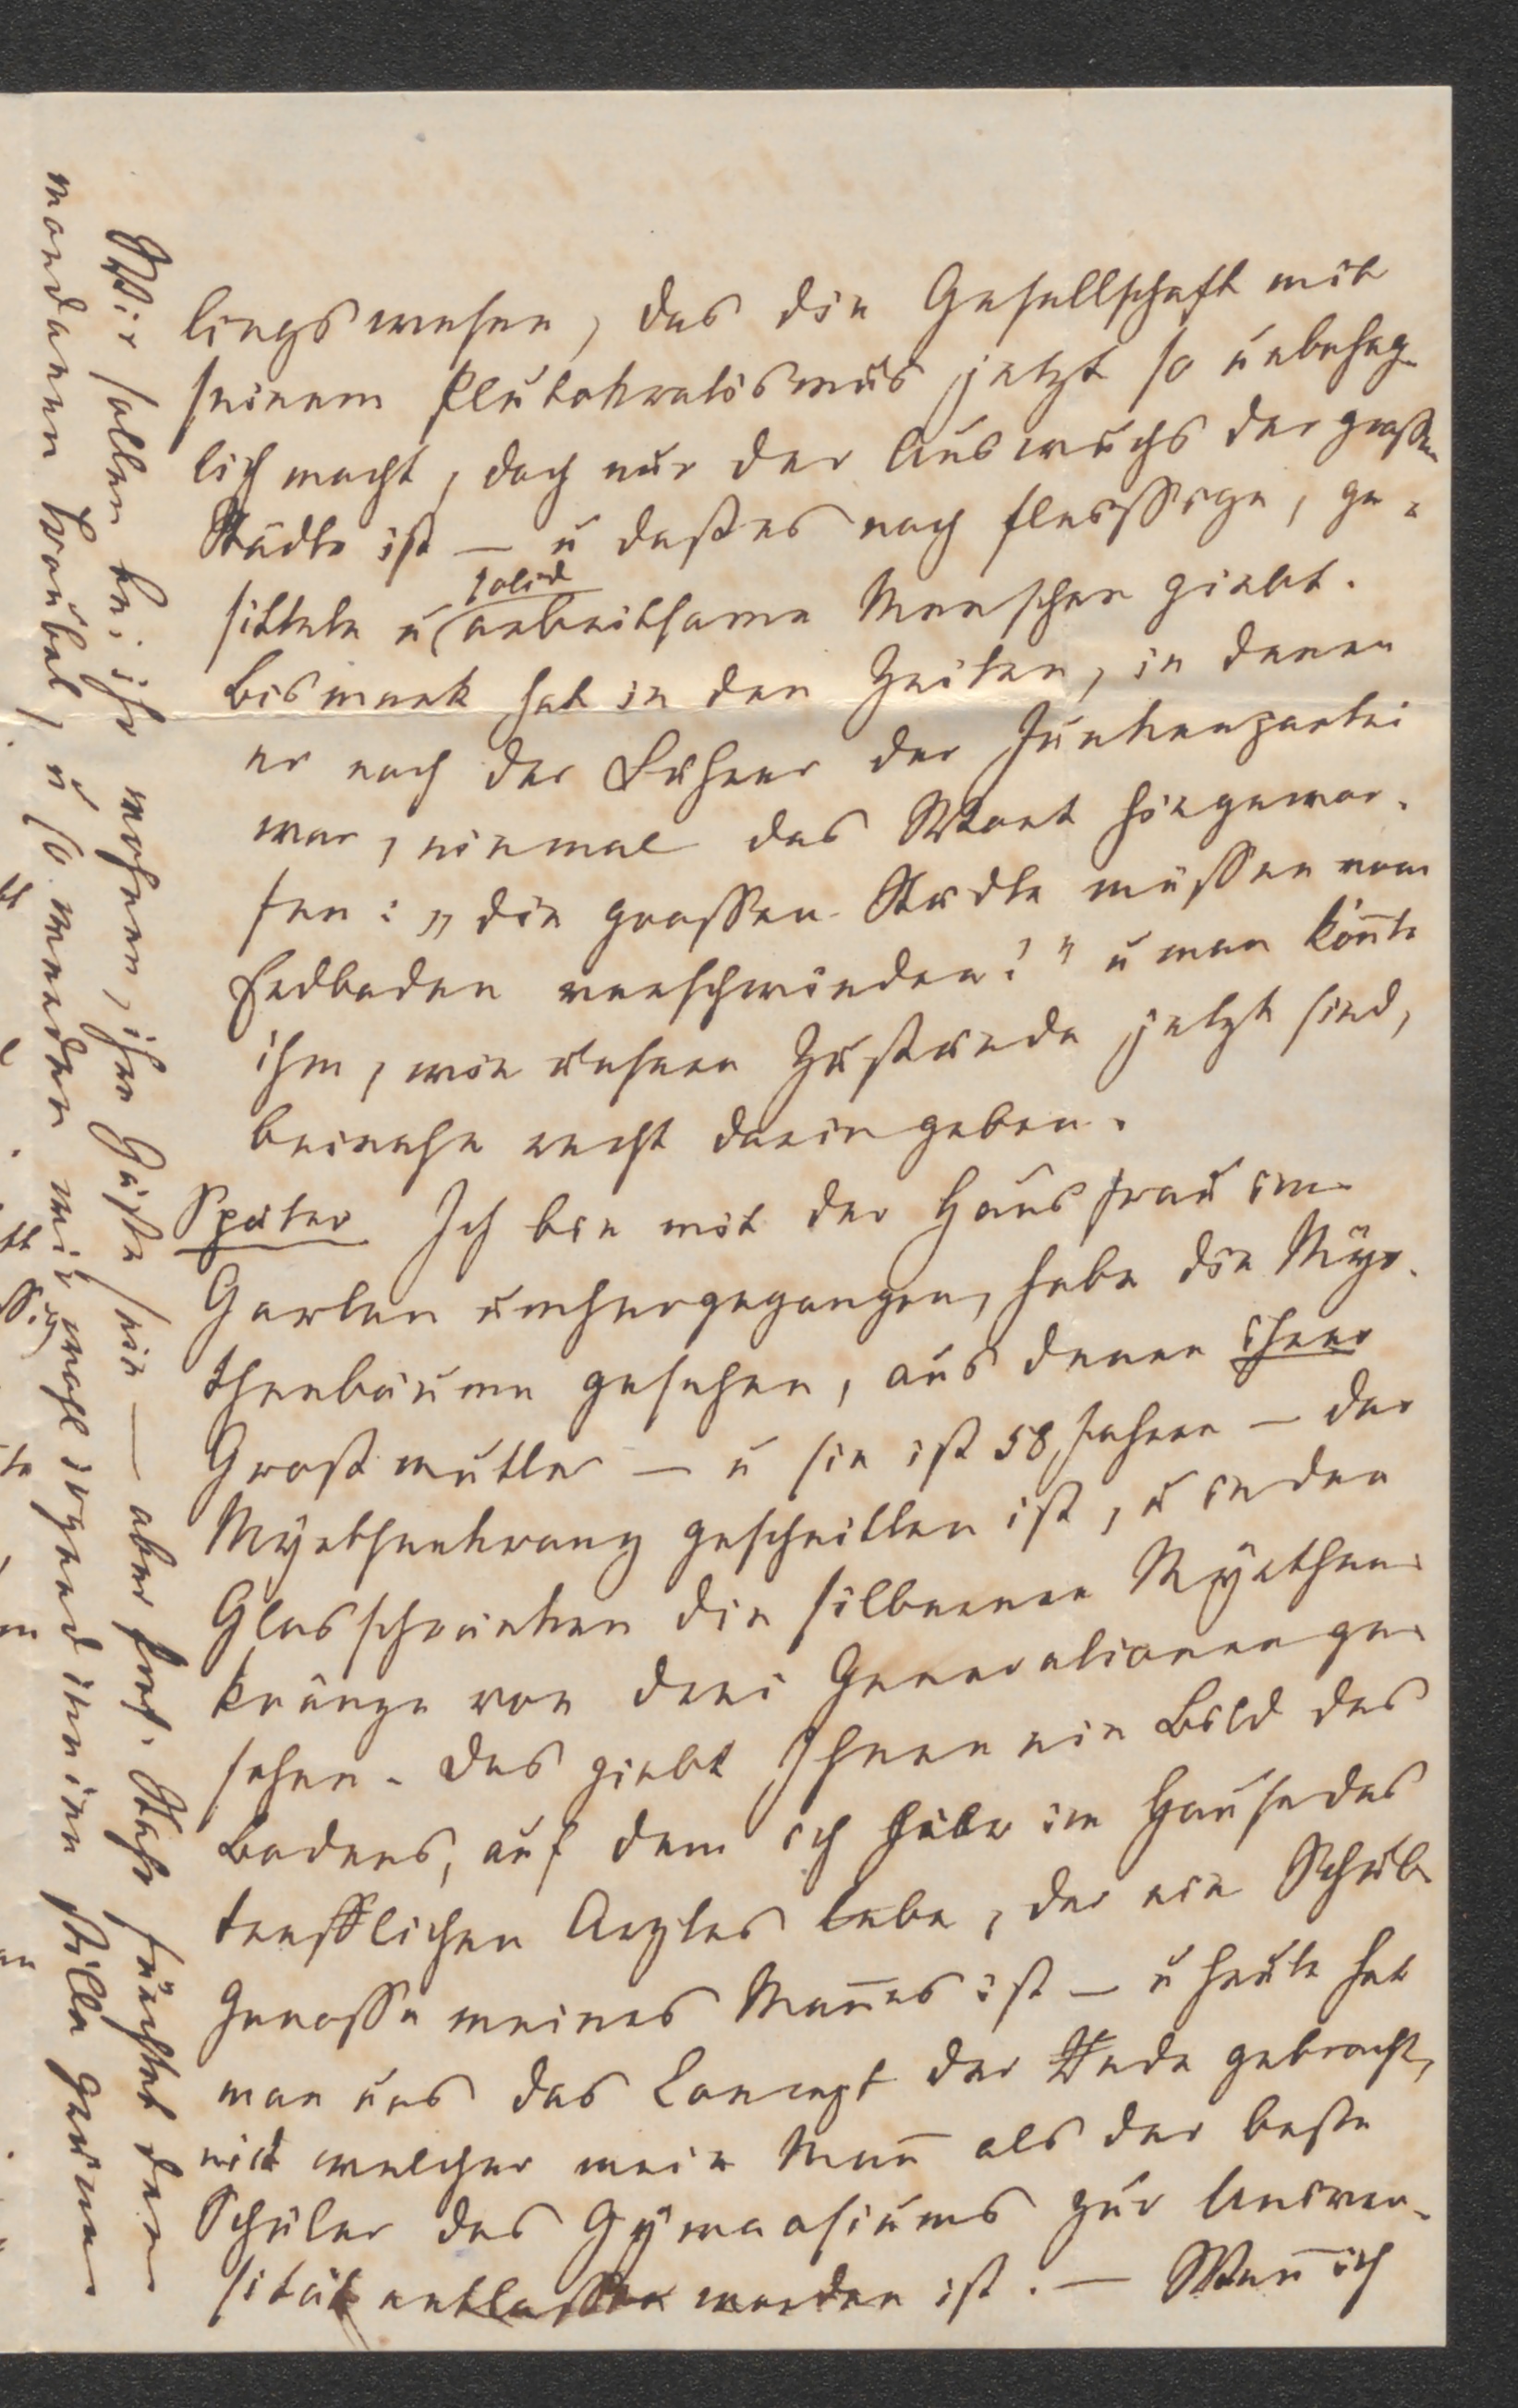 lingswesen, das die Gesellschaft mit
seinem Plutokratismus jetzt so unbehag-
lich macht, doch nur der Auswuchs der großen
Städte ist — u daß es noch fleissige, ge-
sittete u solid arbeitsame Menschen giebt.
Bismark hat in den Zeiten, in denen
er noch der Führer der Junkerpartei
war, einmal das Wort hingewor-
fen: „die grossen Städte müssen vom
Erdboden verschwinden!" u man könnte
ihm, wie unsere Zustände jetzt sind,
beinahe recht darin geben.
Später Ich bin mit der Hausfrau im
Garten umhergegangen, habe die Myr-
thenbäume gesehen, aus denen ihrer
Großmutter — u sie ist 58 Jahre — der
Myrthenkranz geschnitten ist, u in den
Glasschränken die silbernen Myrthen-
kränze von drei Generationen ge-
sehen. Das giebt Ihnen ein Bild des
Bodens, auf dem ich hier im Hause des
trefflichen Arztes lebe, der ein Schul-
genosse meines Mannes ist — u heute hat
man uns das Concept der Rede gebracht,
mit welcher mein Mann als der beste
Schüler des Gymnasiums zur Univer-
sität entlassen worden ist. — Wenn ich
Wir sollen bei ihr wohnen, ihre Gäste sein — aber fest. Stahr fürchtet den
mondainen Trouble, u so werden wir wohl irgend in ein stilles